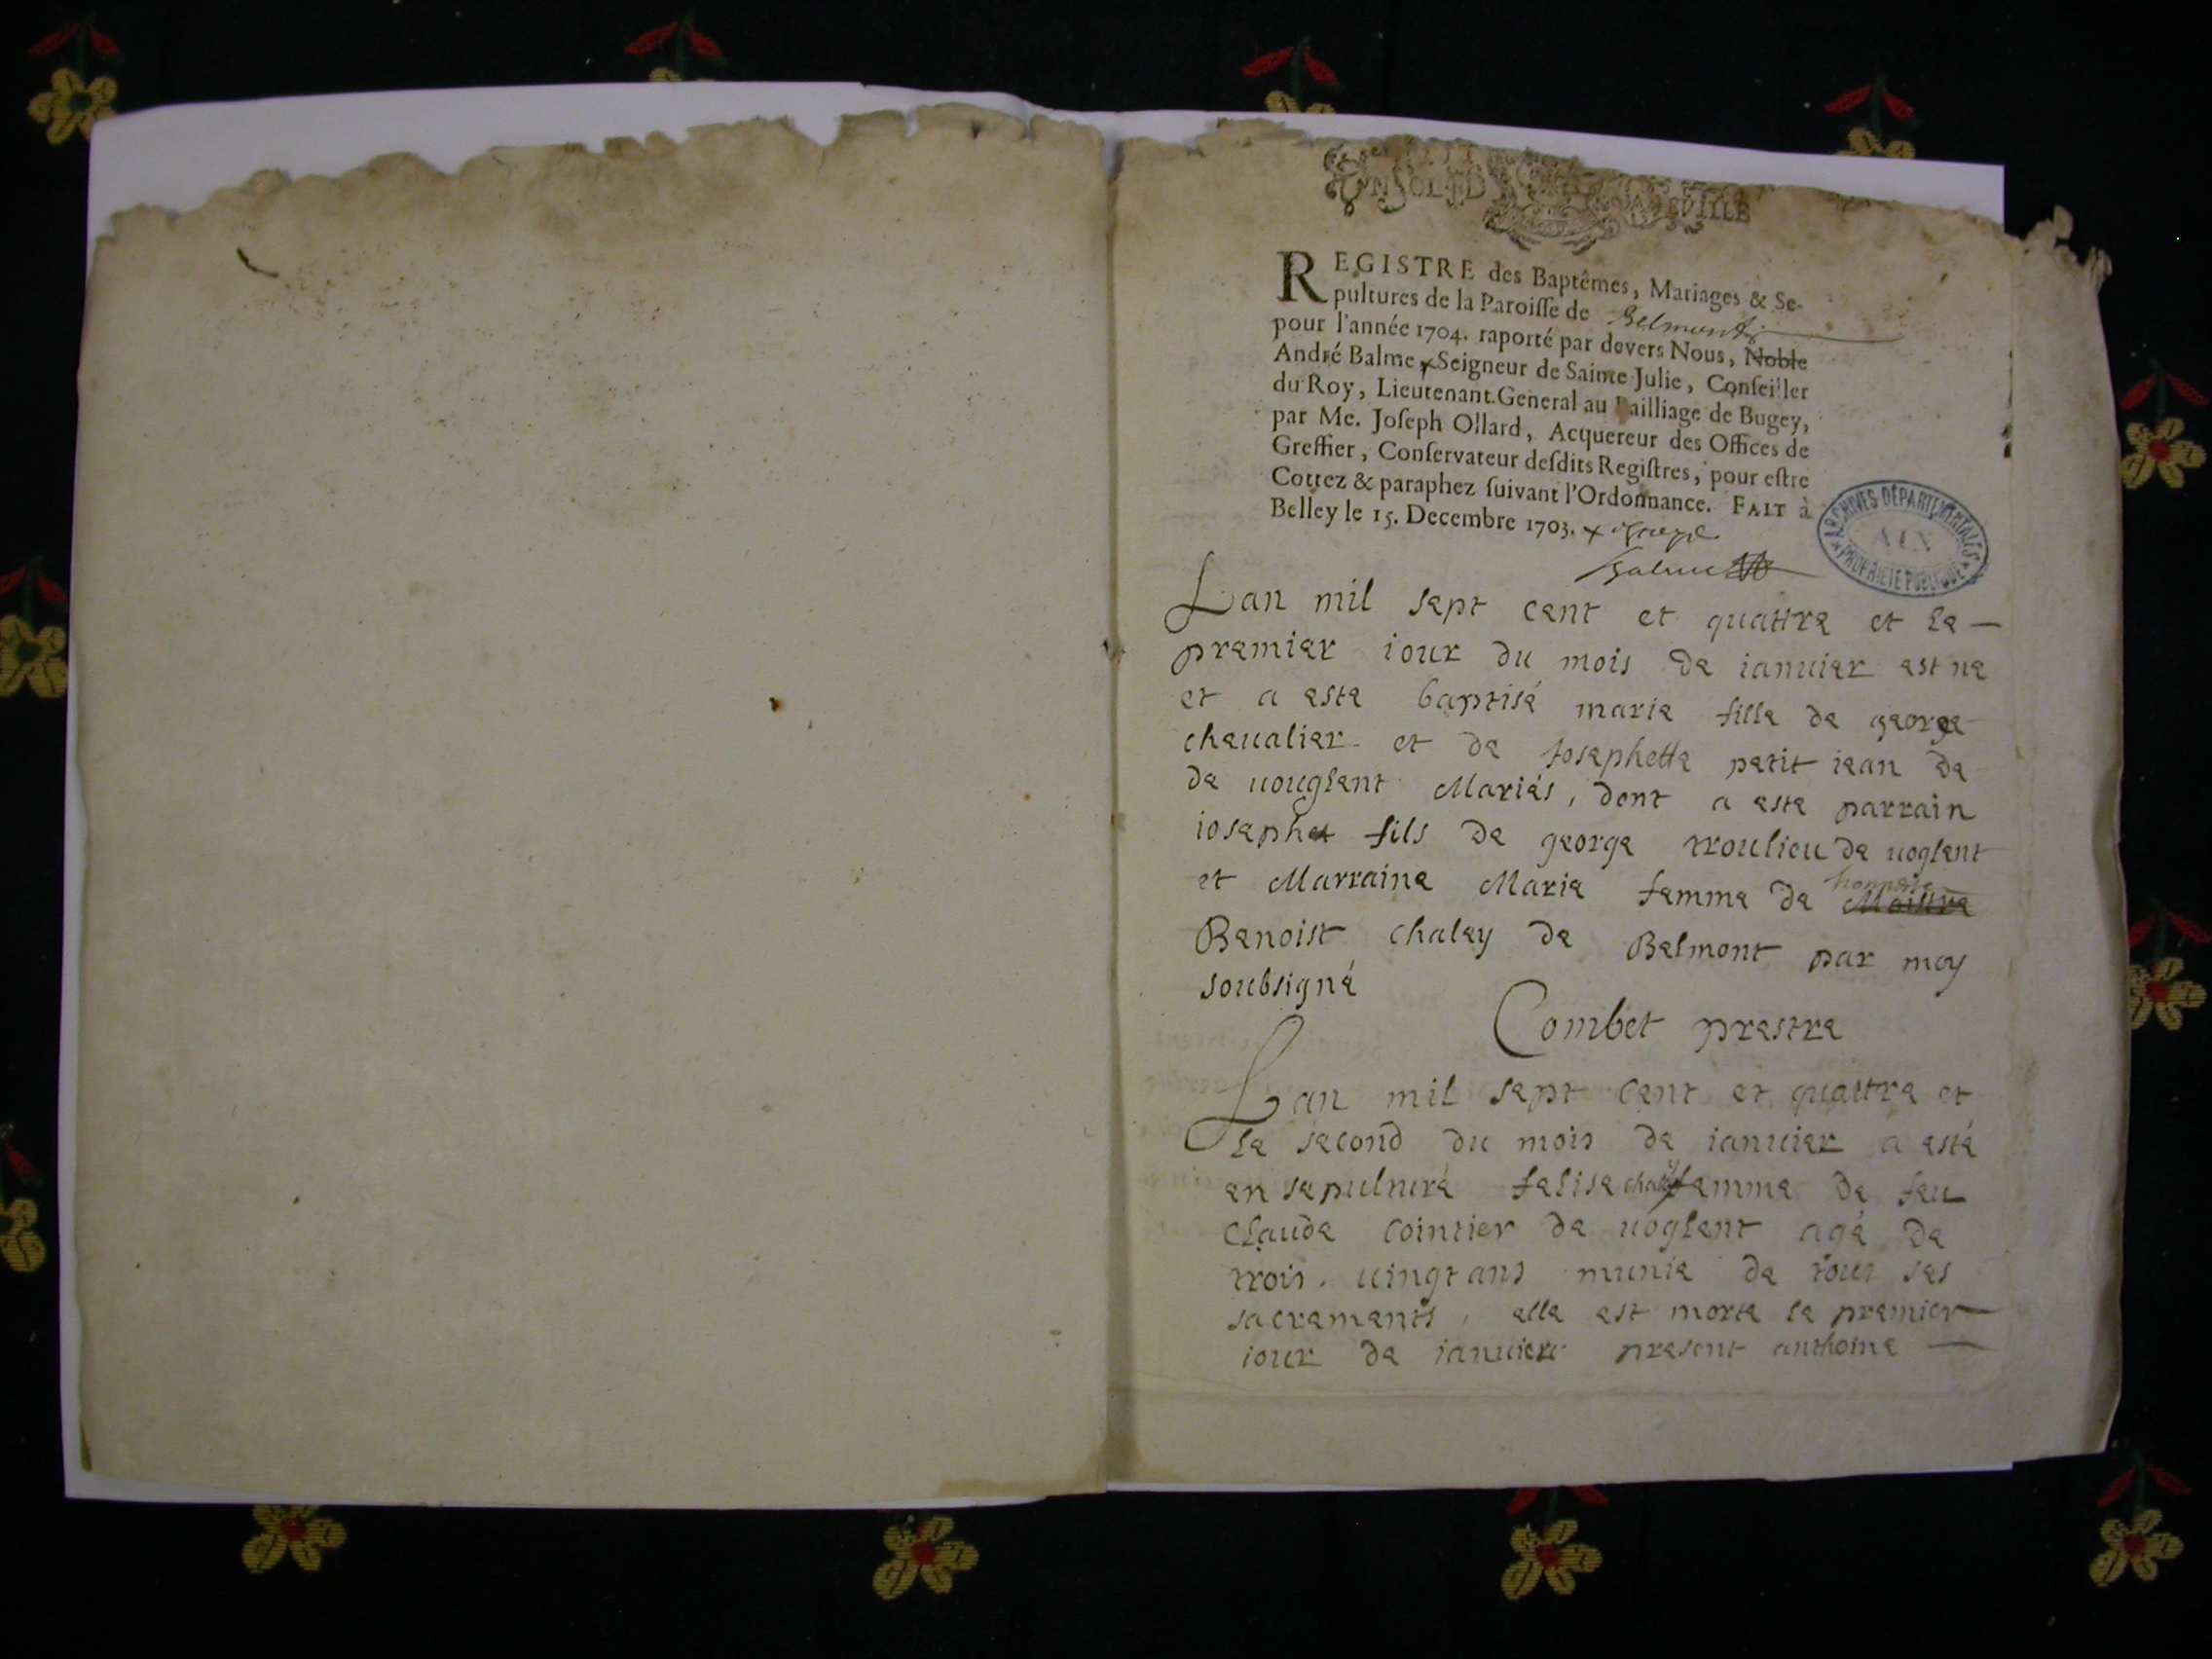 REGISTRE des Baptêmes, Mariages & Se-
pultures de la Paroisse de Belmont
pour l'année 1704. raporté par devers Nous, Noble
André Balme x Seigneur de Sainte Julie, Conseiller
du Roy, Lieutenant General au Bailliage de Bugey,
par Me. Joseph Ollard, Acquereur des Offices de
Greffier, Conservateur desdits Registres, pour estre
Cottez & paraphez suivant l'Ordonnance. FAIT à
Belley le 15. Decembre 1703. x
Balme
ARCHIVES DÉPARTEMENTALES
AIN
PROPRIÉTÉ PUBLIQUE
Lan mil sept cent et quattre et le
premier iour du mois de ianuier est ne
et a este baptisé marie fille de george
cheualier et de Josephette petit iean de
de uouglent Mariés, dont a este parrain
ioseph fils de george troulieu de uoglent
et Marraine Marie femme de honneste Maistre
Benoist chaley de Belmont par moy
soubsigné
Combet prestre
Lan mil sept cent et quattre et
le second du mois de ianuier a esté
en sepulturé felise chaley femme de feu
Claude cointier de uoglent agé de
trois uingt ans munie de tous ses
sacrements, elle est morte le premier
iour de ianuier present anthoine